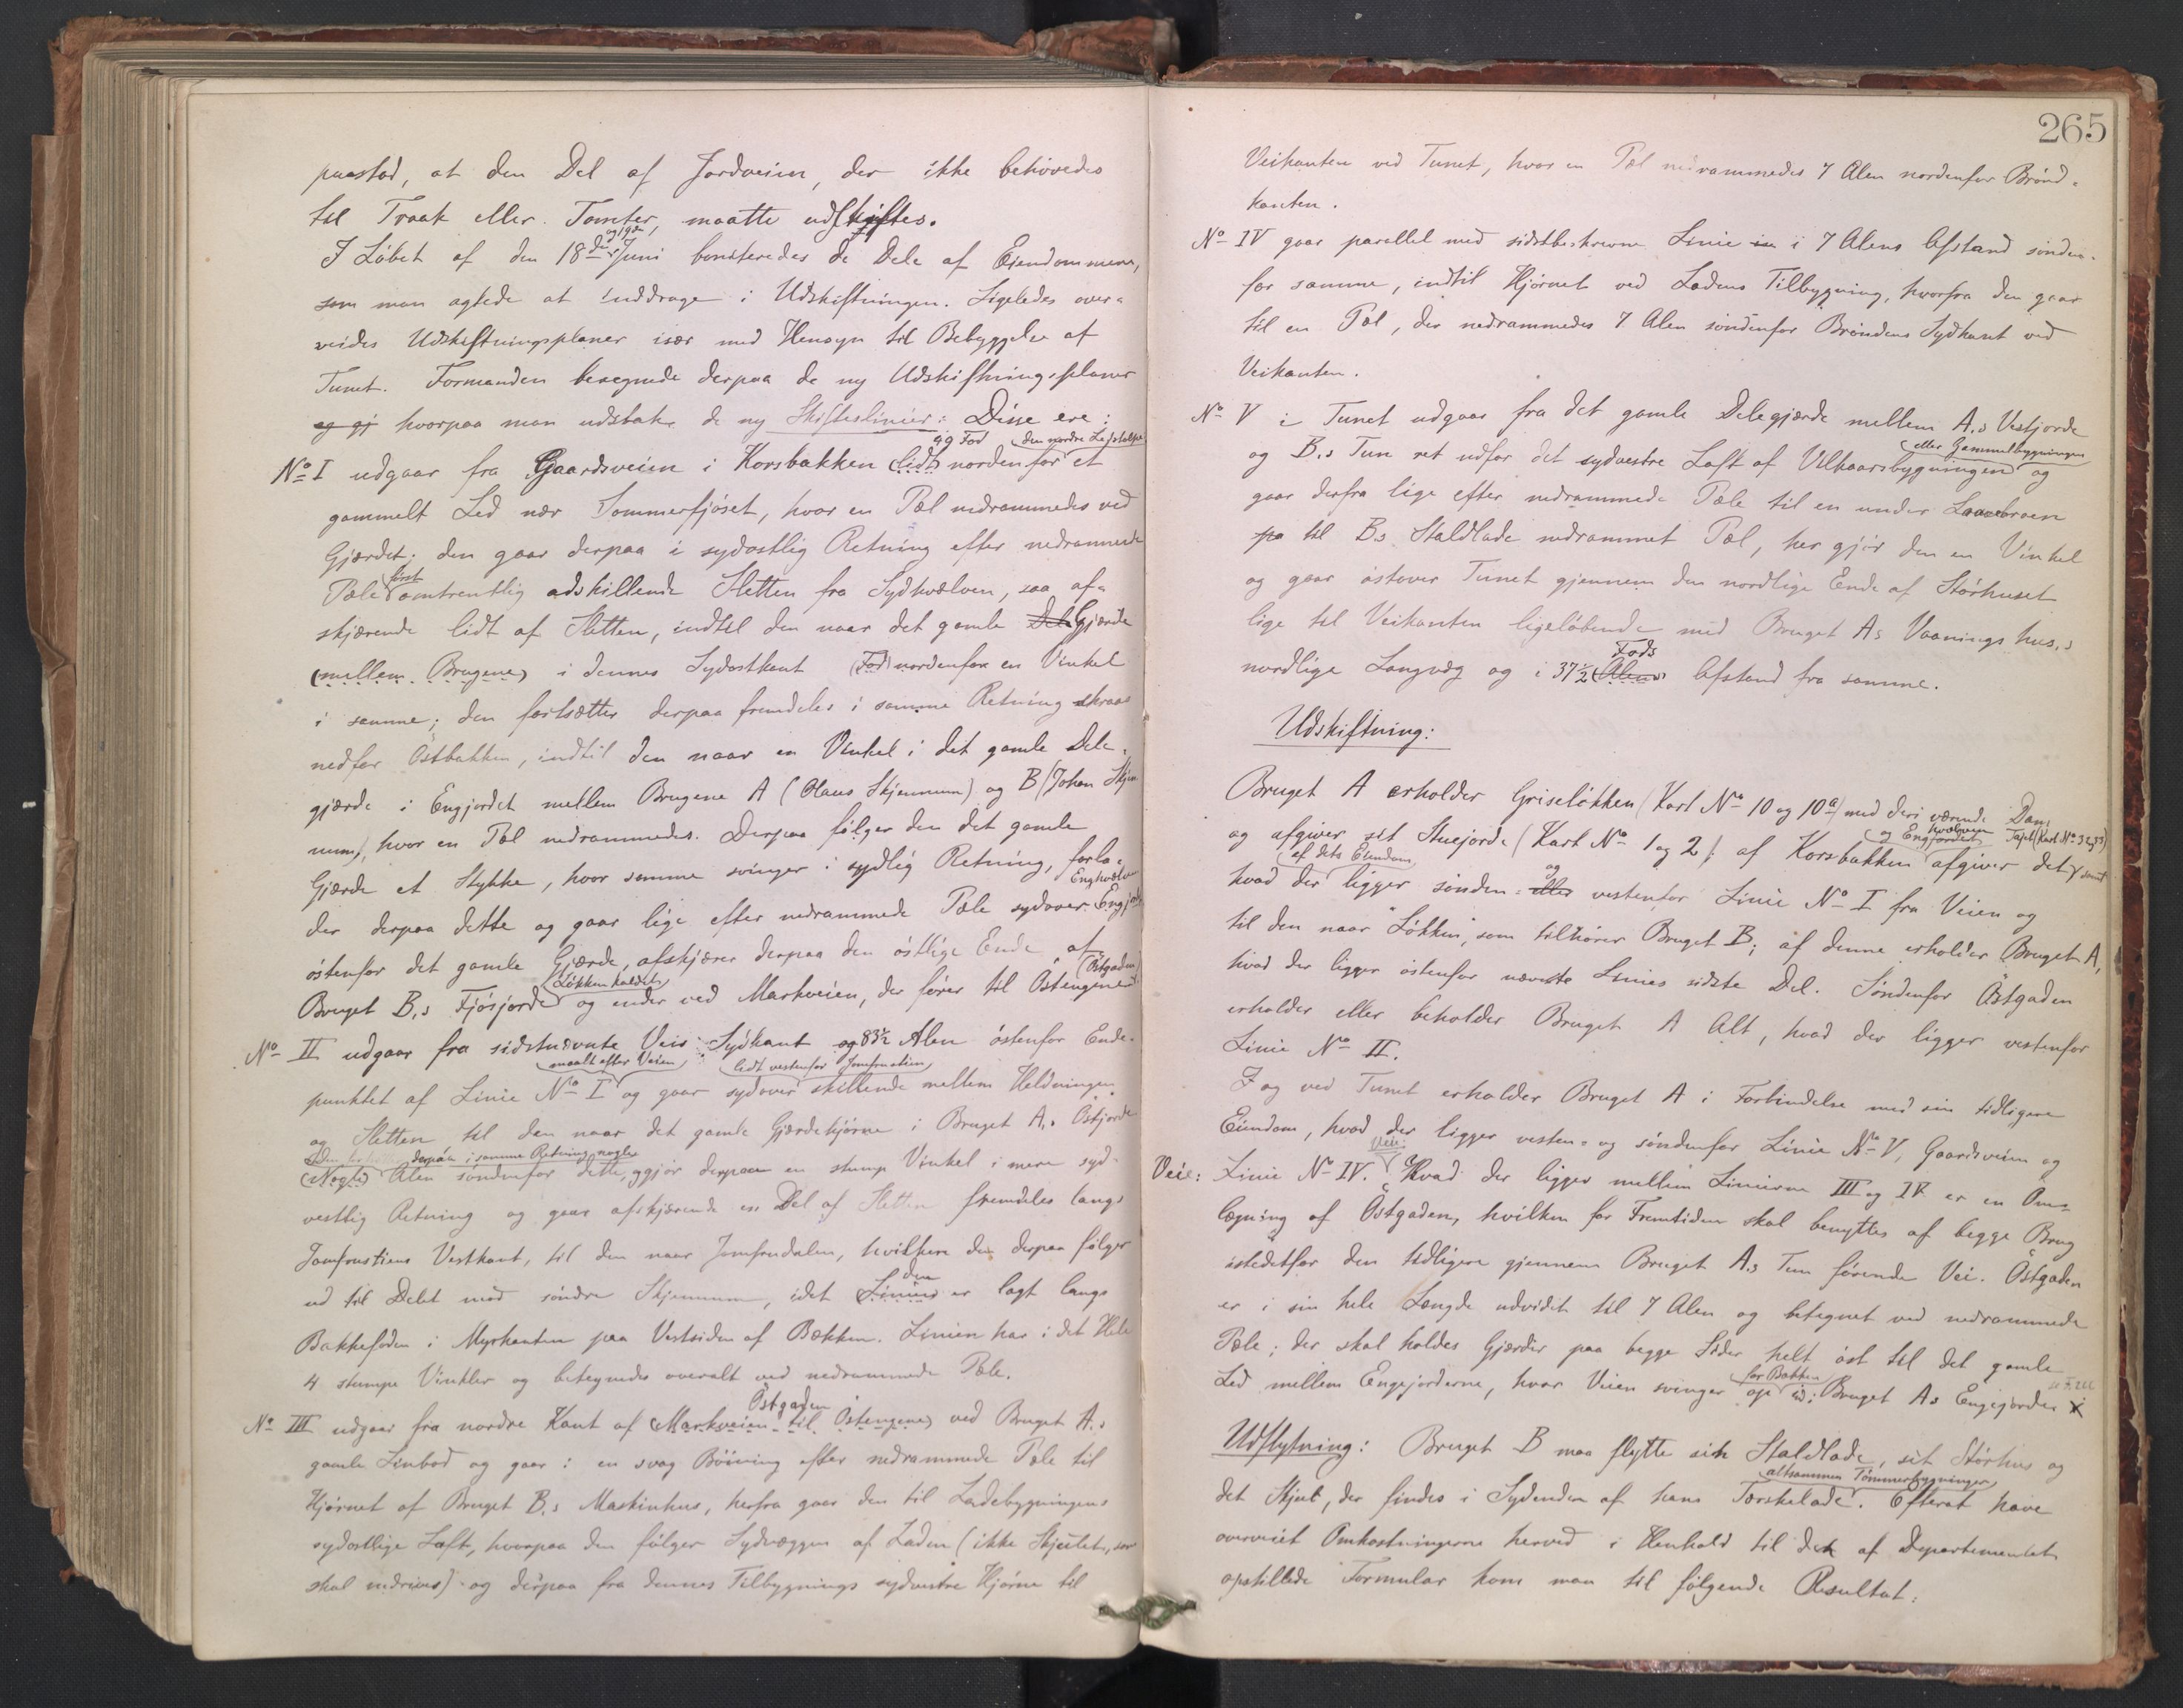 paastod, at den Del af Jordveien, der ikke behövedes
til Traak eller Tomter, maatte udskiftes.
og 19de
I Löbet af den 18de Juni boniteredes de Dele af Eiendommene,
som man agtede at inddrage i Udskiftningen. Ligeledes over-
veides Udskiftningsplaner især med Hensyn til Bebyggelse af
Tunet. Formanden beregnede derpaa de ny Udskiftningsplaner
og gj hvorpaa man udstak de ny Skifteslinier: Disse ere:
99 Fod den nordre Ledstolpe
No I udgaar fra Gaardsveien i Korsbakken (lidt) nordenfor et
gammelt Led nær Sommerfjöset, hvor en Pæl nedrammedes ved
Gjærdet; den gaar derpaa i sydostlig Retning efter nedrammede
först
Pæle omtrentlig adskillende Sletten fra Sydhvælven, saa af-
skjærende lidt af Sletten, indtil den naar det gamle Dele Gjærde
(mellem Brugene) i dennes Sydostkant (Fod) nordenfor en Vinkel
i samme; den fortsætter derpaa fremdeles i samme Retning skraas
nedfor Östbakken, indtil den naar en Vinkel i det gamle Dele-
gjærde i Engjordet mellem Brugene A (Olaus Skjennum) og B (Johan Skjen-
num), hvor en Pæl nedrammedes. Derpaa fölger den det gamle
Gjærde et Stykke, hvor samme svinger i sydlig Retning, forla-
Enghvælven
der derpaa dette og gaar lige efter nedrammede Pæle sydover
östenfor det gamle Gjærde, afskjærer derpaa den östlige Ende af
Lökken kaldet (Östgaden)
Bruget B.s Fjösjorde og ender ved Markveien, der förer til Östengene
No II udgaar fra sidstnævnte Veis Sydkant og 83½ Alen östenfor Ende-
maalt efter Veien lidt vestenfor Jomfrustien
punktet af Linie No I og gaar sydover skillende mellem Heldningen
og Sletten til den naar det gamle Gjærdehjörne i Bruget A.s Östjorde
derpaa i samme Retning nogle
(Nogle) Alen söndenfor dette, gjör derpaa en stump Vinkel i mere syd-
vestlig Retning og gaar afskjærende en Del af Sletten fremdeles langs
Jomfrustiens Vestkant, til den naar Jomfrudalen, hvilken den derpaa fölger
den
ud til Delet mod söndre Skjennum, idet (Linien) er lagt langs
Bakkefoden i Myrkanten paa Vestsiden af Bækken. Linien har i det Hele
4 stumpe Vinkler og betegnedes overalt ved nedrammede Pæle.
Östgaden
No III udgaar fra nordre Kant af (Markveien til Östengene) ved Bruget A.s
gamle Linbod og gaar i en svag Böining efter nedrammede Pæle til
Hjörnet af Bruget B.s Maskinhus, herfra gaar den til Ladebygningens
sydostlige Laft, hvorpaa den fölger Sydvæggen af Laden (ikke Skjulet, som
skal nedrives) og derpaa fra dennes Tilbygnings sydvestre Hjörne til
265
Veikanten ved Tunet, hvor en Pæl nedrammedes 7 Alen nordenfor Brönd-
kanten.
No IV gaar parallel med sidstbeskrevne Linie i 7 Alens Afstand sönden-
for samme, indtil Hjörnet ved Ladens Tilbygning, hvorfra den gaar
til en Pæl, der nedrammedes 7 Alen söndenfor Bröndens Sydkant ved
Veikanten.
No V i Tunet udgaar fra det gamle Delegjærde mellem A.s Vestjorde
eller Gammelbygningen
og B.s Tun ret udfor det sydvestre Laft af Vilkaarsbygningen og
gaar derfra lige efter nedrammede Pæle til en under Laavebroen
pa til B.s Staldlade nedrammet Pæl, her gjör den en Vinkel
og gaar östover Tunet gjennem den nordlige Ende af Störhuset
lige til Veikanten ligelöbende med Bruget As Vaaningshus.s
Fods
nordlige Langvæg og i 37½ (Alens) Afstand fra samme.
Udskiftning:
Bruget A erholder Griselökken (Kart No 10 og 10a) med deri værende Dam,
og Engjordet hvælven Tapet (Kart No 32, 33)
og afgiver sit Stuejorde (Kart No 1 og 2). af Korsbakken afgiver det samt
af dets Eiendom og
hvad der ligger sönden- eller vestenfor Linie No I fra Veien og
til den naar "Lökken", som tilhörer Bruget B; af denne erholder Bruget A,
hvad der ligger östenfor nævnte Linies sidste Del. Söndenfor Östgaden
erholder eller beholder Bruget A Alt, hvad der ligger vestenfor
Linie No II.
I og ved Tunet erholder Bruget A i Forbindelse med sin tidligere
Eiendom, hvad der ligger vesten- og söndenfor Linie No V, Gaardsveien og
Veie: Linie No IV. Hvad der ligger mellem Linierne III og IV er en Om-
lægning af Östgaden, hvilken for Fremtiden skal benyttes af begge Brug
istedetfor den tidligere gjennem Bruget A.s Tun förende Vei. Östgaden
er i sin hele Længde udvidet til 7 Alen og betegnet ved nedrammede
Pæle; der skal holdes Gjærder paa begge Sider helt öst til det gamle
for Bakken
Led mellem Engejorderne, hvor Veien svinger op i Bruget As Engejorder
Udflytning: Bruget B maa flytte sin Staldlade, sit Störhus og
altsammen Tömmerbygninger
det Skjul, der findes i Sydenden af hans Tærskelade. Efterat have
overveiet Omkostningerne herved i Henhold til det af Departementet
opstillede Formular kom man til fölgende Resultat: